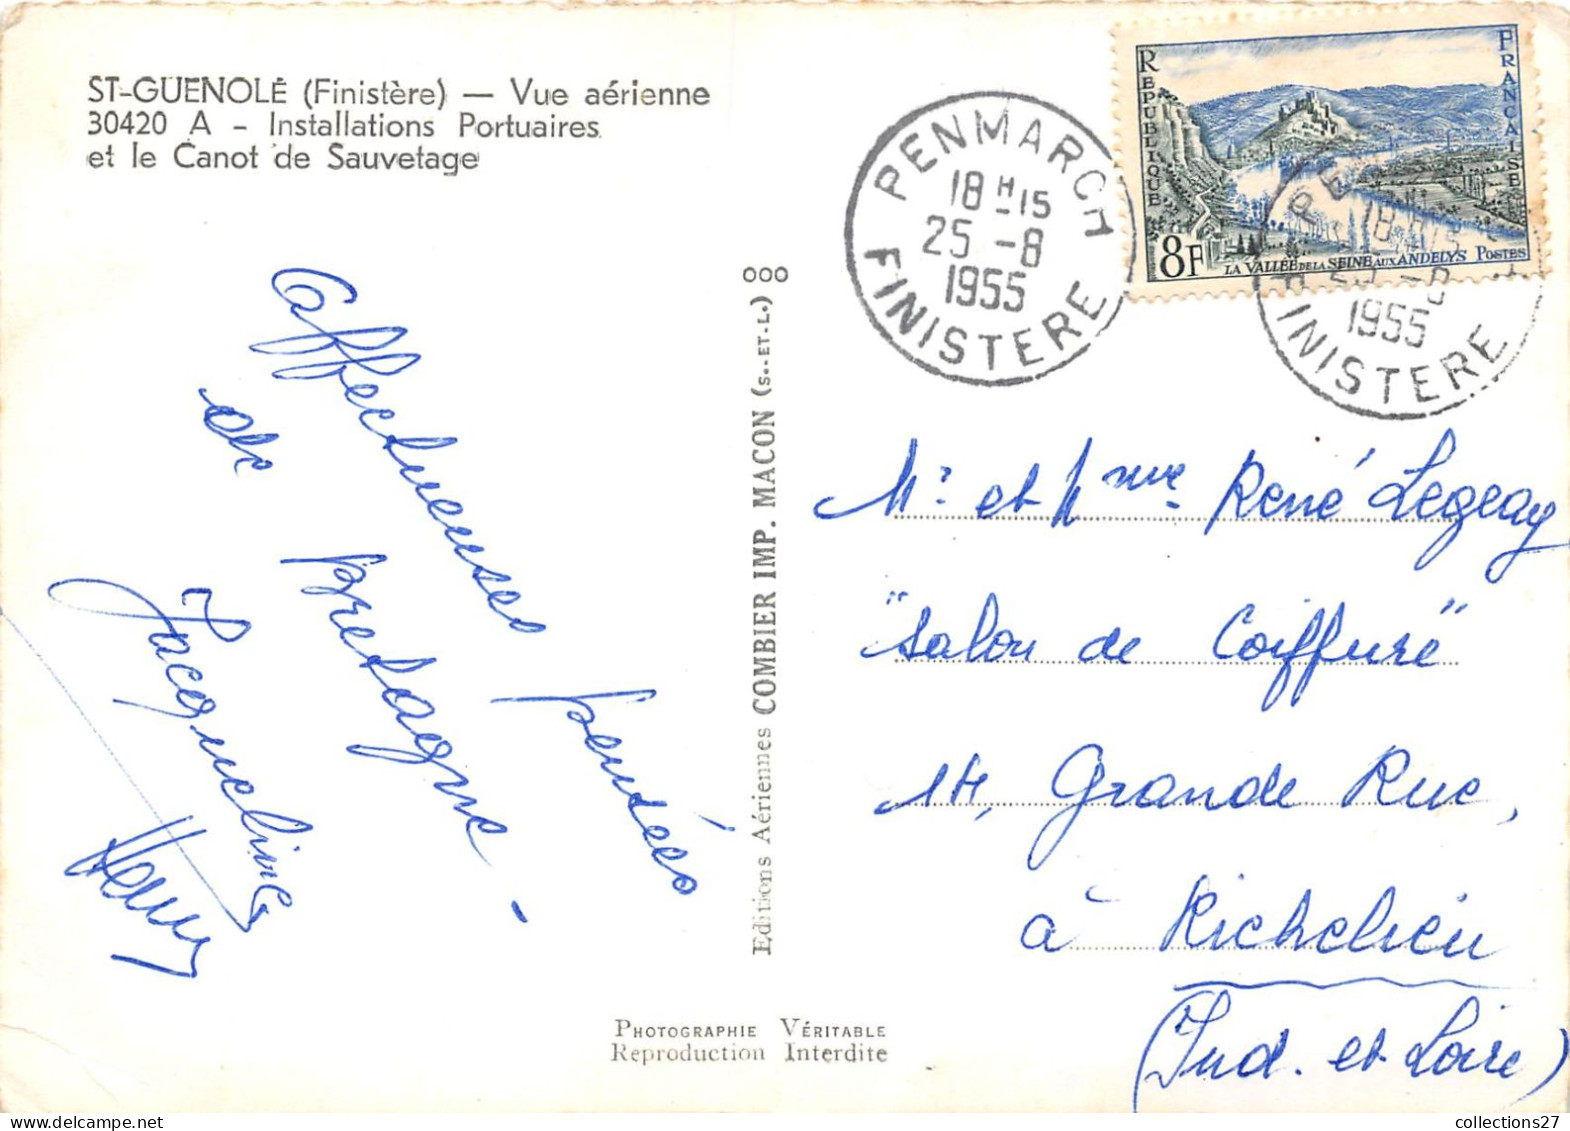 ST-GUENOLÉ (Finistère) — Vue aérienne
30420 A - Installations Portuaires
et le Canot de Sauvetage
RÉPUBLIQUE FRANÇAISE
8F
LA VALLÉE DE LA SEINE AUX ANDELYS POSTES
PENMARCH
18 H 15
25 -8
1955
FINISTERE
PENMARCH
18 H 15
25 -8
1955
FINISTERE
Affectueuses pensées
de Bretagne -
Jacqueline
Henry
Editions Aériennes COMBIER IMP. MACON (S.-ET-L.) OOO
Mr et Mme René Legeay
"Salon de Coiffure"
14, Grande Rue,
à Richelieu
(Ind. et Loire)
PHOTOGRAPHIE VÉRITABLE
Reproduction Interdite
collections27